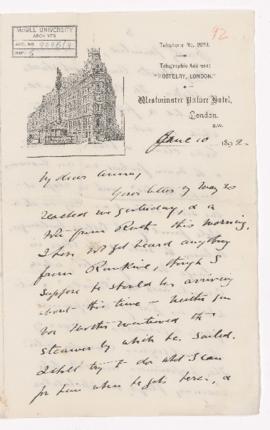 McGILL UNIVERSITY
ARCHIVES
ACC. NO.
REF.
92
Telephone No.
Telegraphic Address:
"HOSTELRY, LONDON."
Westminster Palace Hotel,
London.
S.W.
June 10 1892
My dear Anna,
Your letter of May 20
reached me yesterday, & a
this morning.
I have not yet heard anything
from Rankine, though I
suppose he should be arriving
about this time — neither you
nor mentioned the
steamer by which he sailed.
I shall try to do what I can
for him when he gets here, &